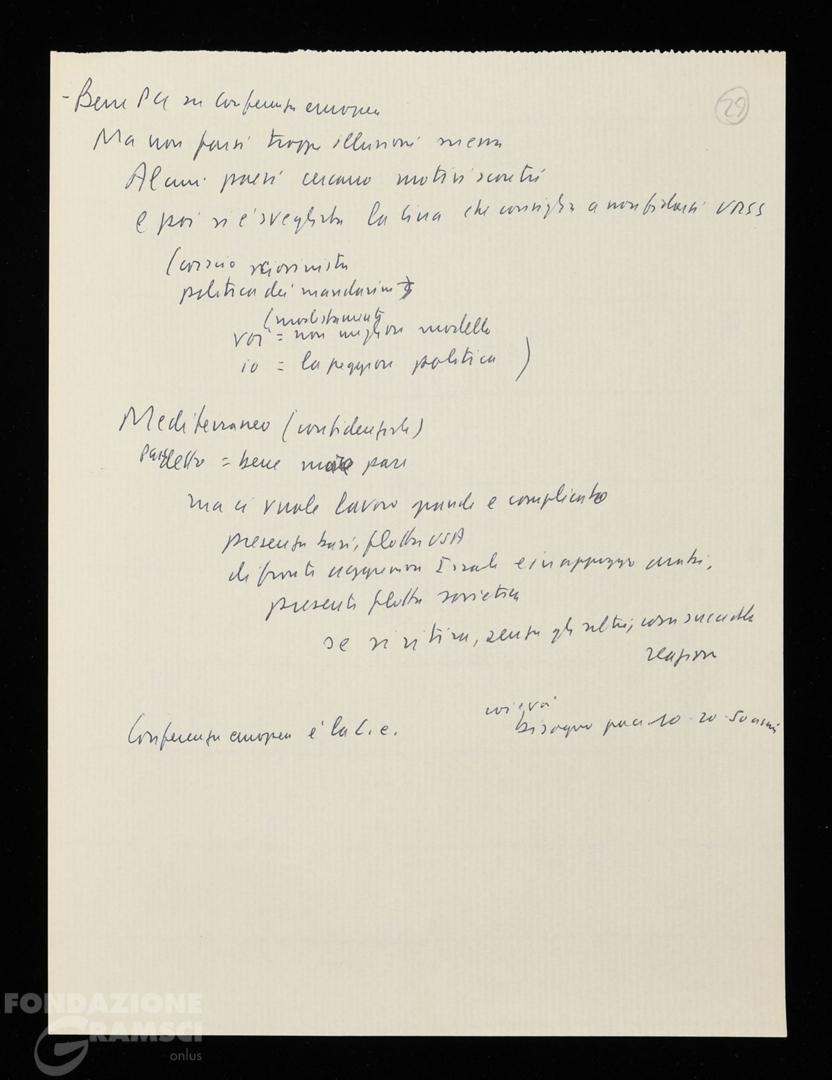 29
- Bene PCI su Conferenza europea
Ma non farsi troppe illusioni
Alcuni paesi cercano motivi
e poi si è svegliata la Cina che consiglia a non fidarsi URSS
(
politica dei mandarini)
(modestamente
voi = non migliore modello
io = la peggiore politica )
Mediterraneo (confidenziale)
detto = bene mare pace
ma ci vuole lavoro grande e complicato
presenza basi, flotta USA
di fronte aggressione Israele e in appoggio arabi,
presente flotta sovietica
se si ritira, senza gli altri, cosa succede
reazione
noi e voi
bisogno pace 10-20-50 anni
Conferenza europea è la C.e.
FONDAZIONE
GRAMSCI
onlus